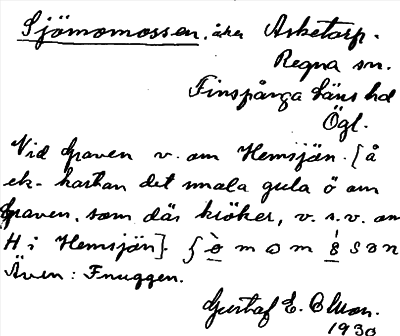 Sjömomossen, åker Asketorp.
Regna sn.
Finspånga läns hd
Ögl.
Vid Graven v. om Hemsjön. [å
ek-kartan det smala gula ö om
Graven, som där kröker, v.s.v. om
H i Hemsjön].
Även: Fnuggen.
Gustaf E. Olson.
1930